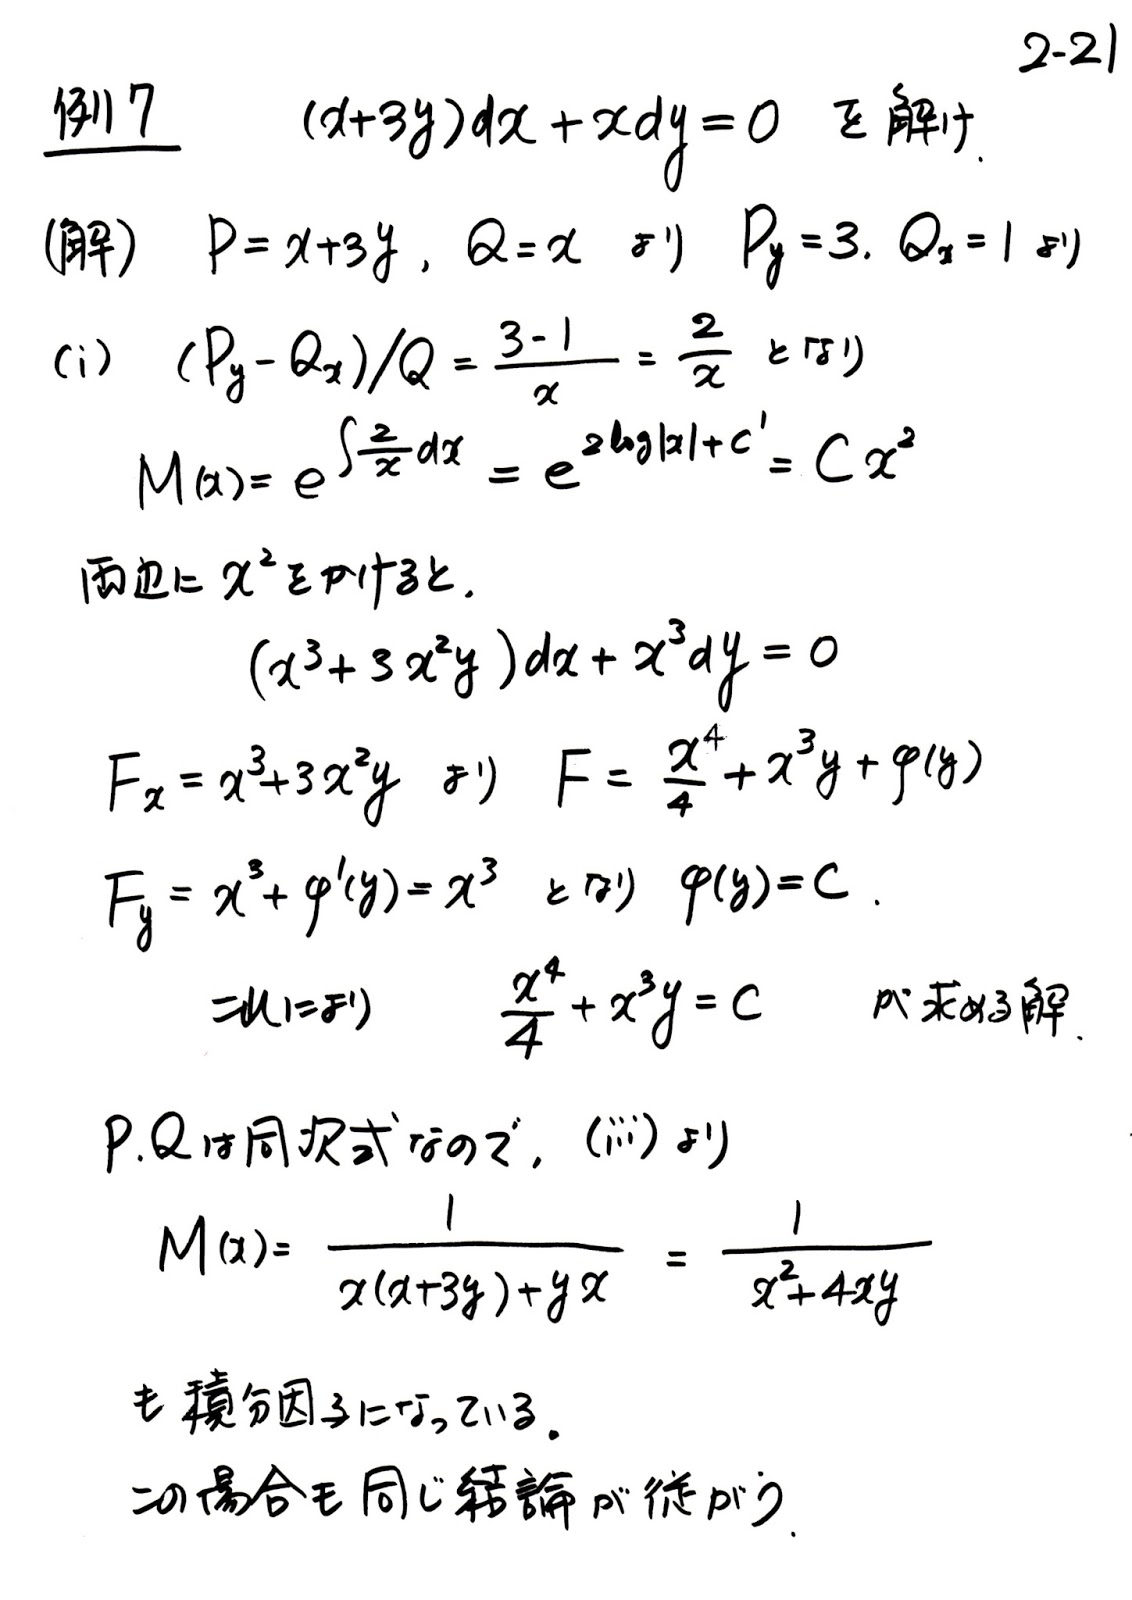 2-21
例7 (x+3y)dx+xdy=0 を解け.
(解) P=x+3y, Q=x より Py=3. Qx=1 より
(i) (Py-Qx)/Q = (3-1)/x = 2/x となり
M(x)= e^{∫(2/x)dx} = e^{2log|x|+C'} = Cx²
両辺に x² をかけると,
(x³+3x²y)dx+x³dy=0
Fx=x³+3x²y より F= x⁴/4 + x³y+φ(y)
Fy=x³+φ'(y)=x³ となり φ(y)=C.
これにより x⁴/4 + x³y=C が求める解.
P.Qは同次式なので, (iii) より
M(x)= 1/(x(x+3y)+yx) = 1/(x²+4xy)
も積分因子になっている.
この場合も同じ結論が従がう.